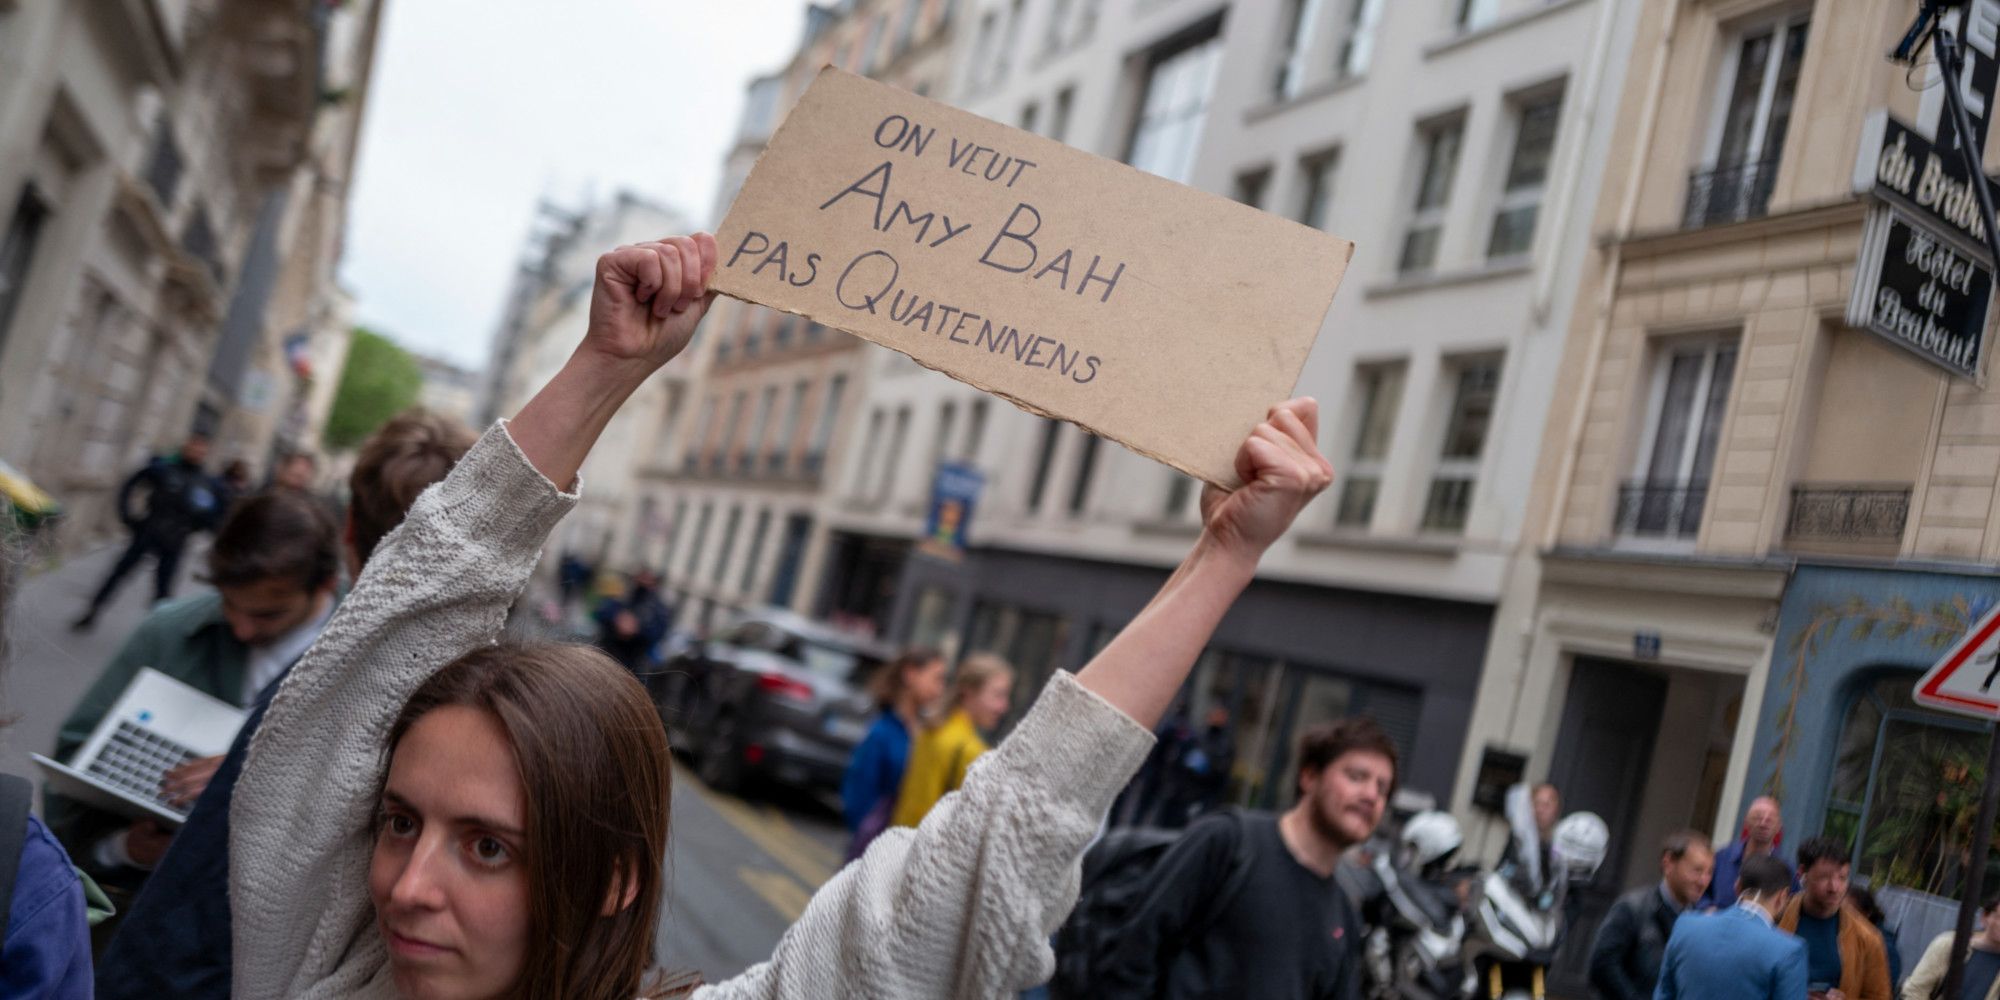 ON VEUT
AMY BAH
PAS QUATENNENS
du Braba
Hôtel
du
Brabant